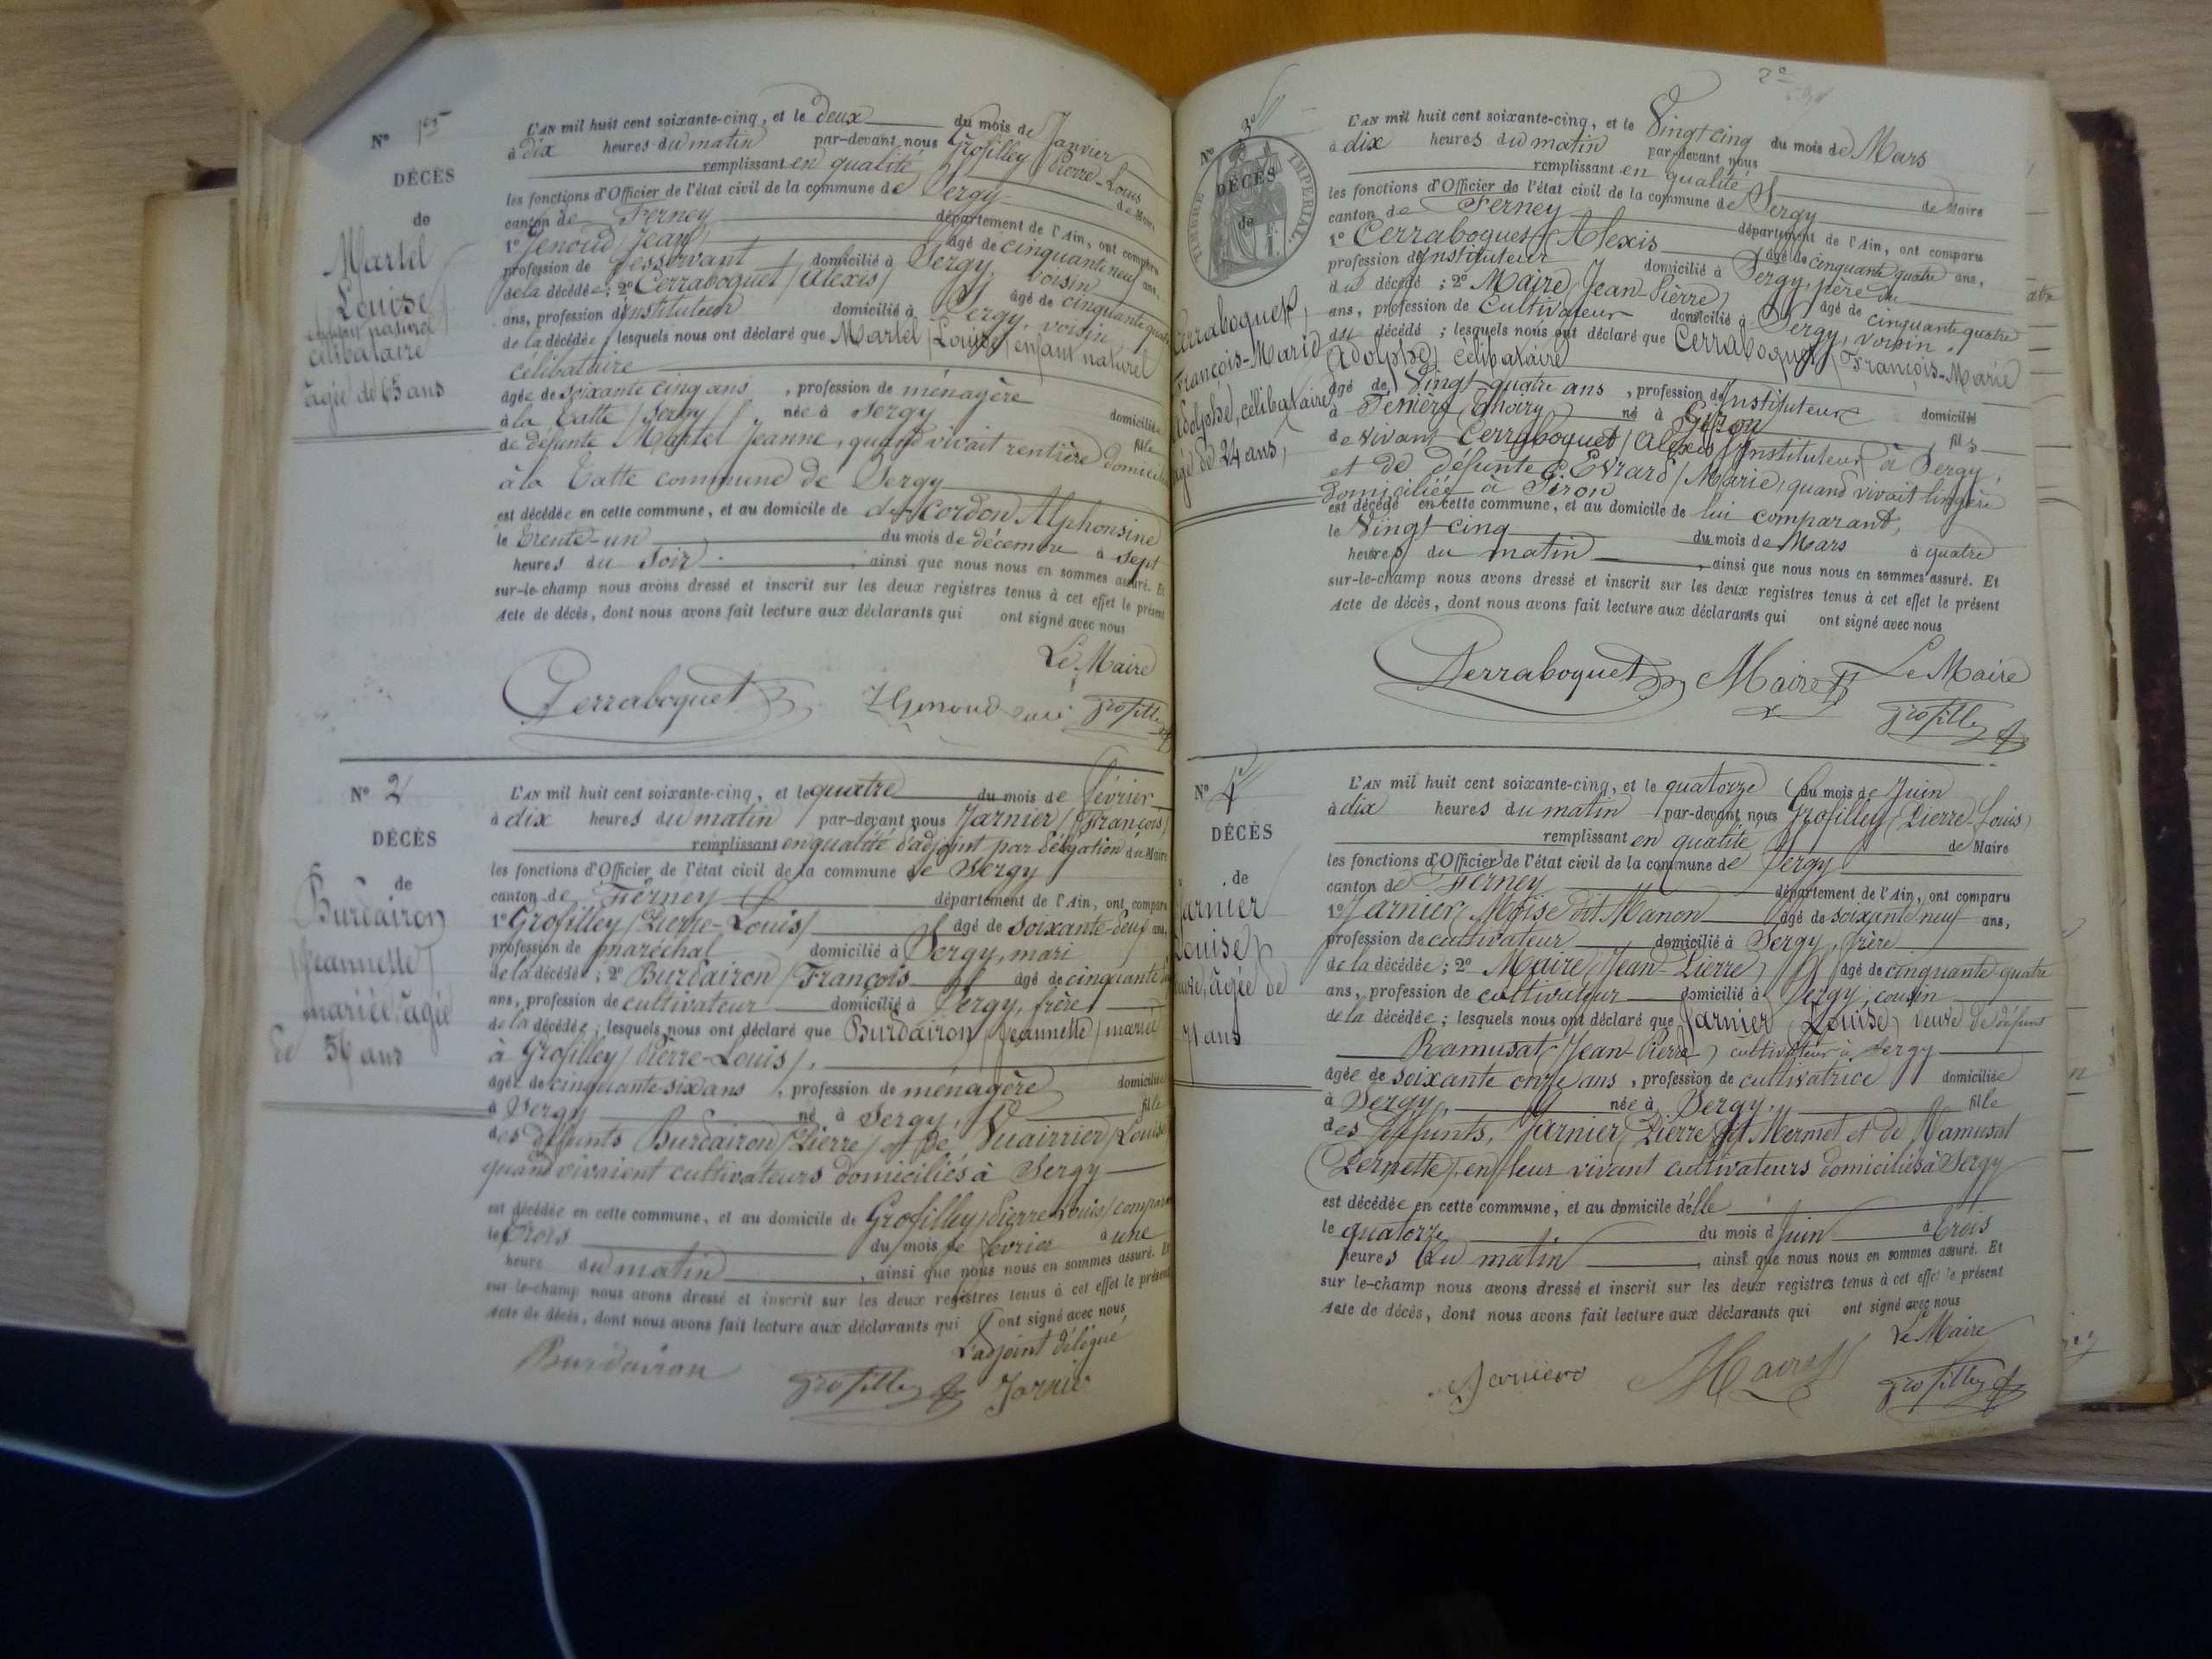 Nº 1er
DÉCÈS
de
Martel
Louise
enfant naturel
célibataire
âgée de 65 ans
L'AN mil huit cent soixante-cinq, et le deux du mois de Janvier
à dix heures du matin par-devant nous Grosfilley Pierre-Louis
remplissant en qualité de Maire
les fonctions d'Officier de l'état civil de la commune de Sergy
canton de Ferney département de l'Ain, ont comparu
1º Genoud Jean âgé de cinquante neuf ans,
profession de desservant domicilié à Sergy, voisin
de la décédée; 2º Cerraboquet (Alexis) âgé de cinquante quatre
ans, profession d'instituteur domicilié à Sergy, voisin
de la décédée; lesquels nous ont déclaré que Martel (Louise) enfant naturel
célibataire
âgée de soixante cinq ans, profession de ménagère domiciliée
à la Catte (Sergy) née à Sergy fille
de défunte Martel Jeanne, quand vivait rentière domiciliée
à la Catte commune de Sergy
est décédée en cette commune, et au domicile de Cordon Alphonsine
le trente-un du mois de décembre à sept
heures du soir, ainsi que nous nous en sommes assuré. Et
sur-le-champ nous avons dressé et inscrit sur les deux registres tenus à cet effet le présent
Acte de décès, dont nous avons fait lecture aux déclarants qui ont signé avec nous
Le Maire
Perraboquet Genoud Grosfilley
Nº 2
DÉCÈS
de
Burdairon
Jeannette
mariée, âgée
de 56 ans
L'AN mil huit cent soixante-cinq, et le quatre du mois de Février
à dix heures du matin par-devant nous Jarnier (François)
remplissant en qualité d'adjoint par délégation du Maire
les fonctions d'Officier de l'état civil de la commune de Sergy
canton de Ferney département de l'Ain, ont comparu
1º Grosfilley (Pierre-Louis) âgé de soixante-deux ans,
profession de maréchal domicilié à Sergy, mari
de la décédée; 2º Burdairon François âgé de cinquante
ans, profession de cultivateur domicilié à Sergy, frère
de la décédée; lesquels nous ont déclaré que Burdairon (Jeannette) mariée
à Grosfilley (Pierre-Louis),
âgée de cinquante-six ans, profession de ménagère domiciliée
à Sergy né à Sergy, fille
des défunts Burdairon (Pierre) et de Vuairrier (Louise
quand vivaient cultivateurs domiciliés à Sergy
est décédée en cette commune, et au domicile de Grosfilley (Pierre Louis) comparant
le trois du mois de février à une
heure du matin, ainsi que nous nous en sommes assuré. Et
sur-le-champ nous avons dressé et inscrit sur les deux registres tenus à cet effet le présent
Acte de décès, dont nous avons fait lecture aux déclarants qui ont signé avec nous
L'adjoint délégué
Burdairon Grosfilley Jarnier
Nº 3e
DÉCÈS
de
TIMBRE IMPÉRIAL
1 F.
Cerraboquet,
François-Marie
Adolphe, célibataire
âgé de 24 ans,
L'AN mil huit cent soixante-cinq, et le vingt cinq du mois de Mars
à dix heures du matin par-devant nous
remplissant en qualité de Maire
les fonctions d'Officier de l'état civil de la commune de Sergy
canton de Ferney département de l'Ain, ont comparu
1º Cerraboquet Alexis âgé de cinquante quatre ans,
profession d'instituteur domicilié à Sergy, père du
du décédé; 2º Maire (Jean-Pierre) âgé de cinquante quatre
ans, profession de cultivateur domicilié à Sergy, voisin.
du décédé; lesquels nous ont déclaré que Cerraboquet (François-Marie
Adolphe) célibataire
âgé de vingt-quatre ans, profession d'instituteur domicilié
à Fenière (Thoiry) né à Giron fils
de vivant Cerraboquet (Alexis) Instituteur à Sergy
et de défunte Evrard (Marie) quand vivait lingère
domiciliée à Giron
est décédé en cette commune, et au domicile de lui comparant,
le vingt cinq du mois de Mars à quatre
heures du matin, ainsi que nous nous en sommes assuré. Et
sur-le-champ nous avons dressé et inscrit sur les deux registres tenus à cet effet le présent
Acte de décès, dont nous avons fait lecture aux déclarants qui ont signé avec nous
Perraboquet Maire Le Maire
Grosfilley
Nº 4e
DÉCÈS
de
Jarnier
Louise
veuve, âgée de
71 ans
L'AN mil huit cent soixante-cinq, et le quatorze du mois de Juin
à dix heures du matin par-devant nous Grosfilley (Pierre-Louis)
remplissant en qualité de Maire
les fonctions d'Officier de l'état civil de la commune de Sergy
canton de Ferney département de l'Ain, ont comparu
1º Jarnier, Moïse dit Manon âgé de soixante neuf ans,
profession de cultivateur domicilié à Sergy, frère
de la décédée; 2º Maire (Jean-Pierre) âgé de cinquante quatre
ans, profession de cultivateur domicilié à Sergy, cousin
de la décédée; lesquels nous ont déclaré que Jarnier (Louise) veuve de défunt
Ramusat (Jean-Pierre) cultivateur à Sergy
âgée de soixante onze ans, profession de cultivatrice domiciliée
à Sergy, née à Sergy, fille
des défunts, Jarnier Pierre dit Mermet et de Ramusat
(Pernette), en leur vivant cultivateurs domiciliés à Sergy
est décédée en cette commune, et au domicile d'elle
le quatorze du mois d Juin à trois
heures du matin, ainsi que nous nous en sommes assuré. Et
sur le-champ nous avons dressé et inscrit sur les deux registres tenus à cet effet le présent
Acte de décès, dont nous avons fait lecture aux déclarants qui ont signé avec nous
Le Maire
Jarnier Maire Grosfilley